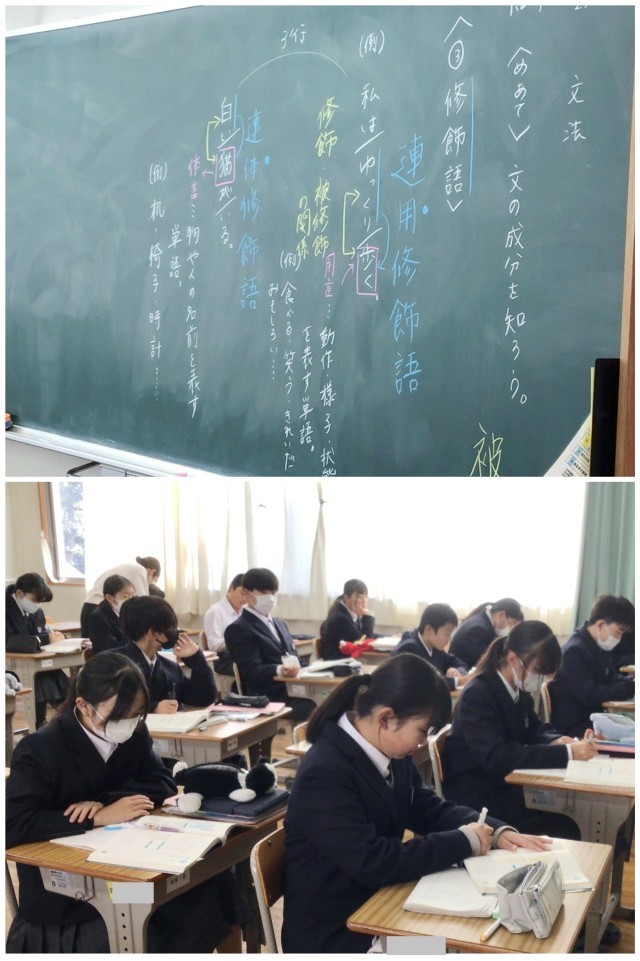 文法
〈めあて〉 文の成分を知ろう。
〈③修飾語〉
連用修飾語
(例) 私は/ゆっくり/歩く
用言…動作・様子・状態
を表す単語。
(例) 食べる、笑う、きれいだ
おもしろい…
修飾・被修飾
の関係
3行
連体修飾語
白い/猫がいる。
体言…物や人の名前を表す
単語。
(例) 机・椅子・時計……
被